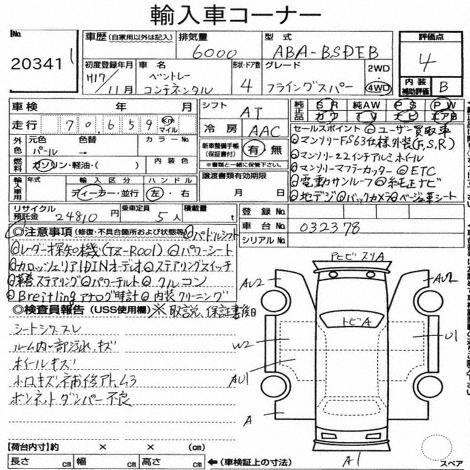 輸入車コーナー
20341
車歴 (自家用以外は記入) 排気量 6000 型式 ABA-BSDEB 評価点 4
初度登録年月 H17/11月 車名 ベントレー コンチネンタル 形状・ドア数 4 グレード フライングスパー 2WD 4WD 内装補助評価 B
車検 年 月 シフト AT
走行 70,659 km マイル 冷房 AAC
純正品 SR 純AW PS PW
外色 元色 パール 色替
燃料 ガソリン・軽油・( )
新車整備手帳 (保証書付) 有 無
輸入車 年式 輸入区分 ディーラー・並行 ハンドル 左・右
譲渡書類有効期限 年 月 日
セールスポイント ◎ユーザー買取車
◎マンソリーFS63仕様外装(F,S,R)
◎マンソリー22インチアルミホイール
◎マンソリーマフラーカッター ◎ETC
◎電動サンルーフ ◎純正ナビ
◎地デジ ◎バックカメラ ◎ベージュ革シート
リサイクル預託金 24810 円 乗車定員 5人 積載量
登録No.
車台No. 032378
シリアルNo.
◎注意事項 (修復・不具合箇所および状態等) ◎パドルシフト
◎レーダー探知機(TZ-R001) ◎パワーシート
◎カロッツェリア1DINオーディオ ◎ステアリングスイッチ
◎ステアリング ◎パワーチルト ◎クルコン
◎Breitlingアナログ時計 ◎内装クリーニング
◎検査員報告 (USS使用欄) ※取説、保証書後日
シートシワ、スレ
ルーム内一部汚れ、キズ
ホイールキズ
小キズ補修アトムラ
ボンネットダンパー不良
トビA
AU2
AU2
W2
U1
AU1
A
A1
(荷台内寸) × ×
長さ cm 幅 cm 高さ cm ←(車検証上の寸法)
スペア